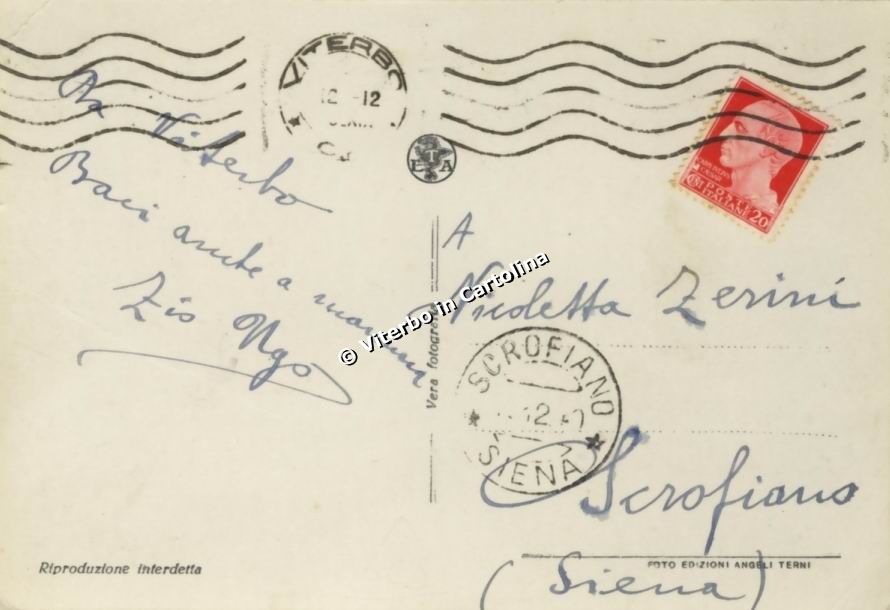 VITERBO
12 12
ETA
POSTE
ITALIANE
20
Da Viterbo
Baci anche a mamma
Zio Ugo
A
Nicoletta Zerini
Scrofiano
(Siena)
SCROFIANO
12
SIENA
Vera fotografia
© Viterbo in Cartolina
Riproduzione interdetta
FOTO EDIZIONI ANGELI TERNI